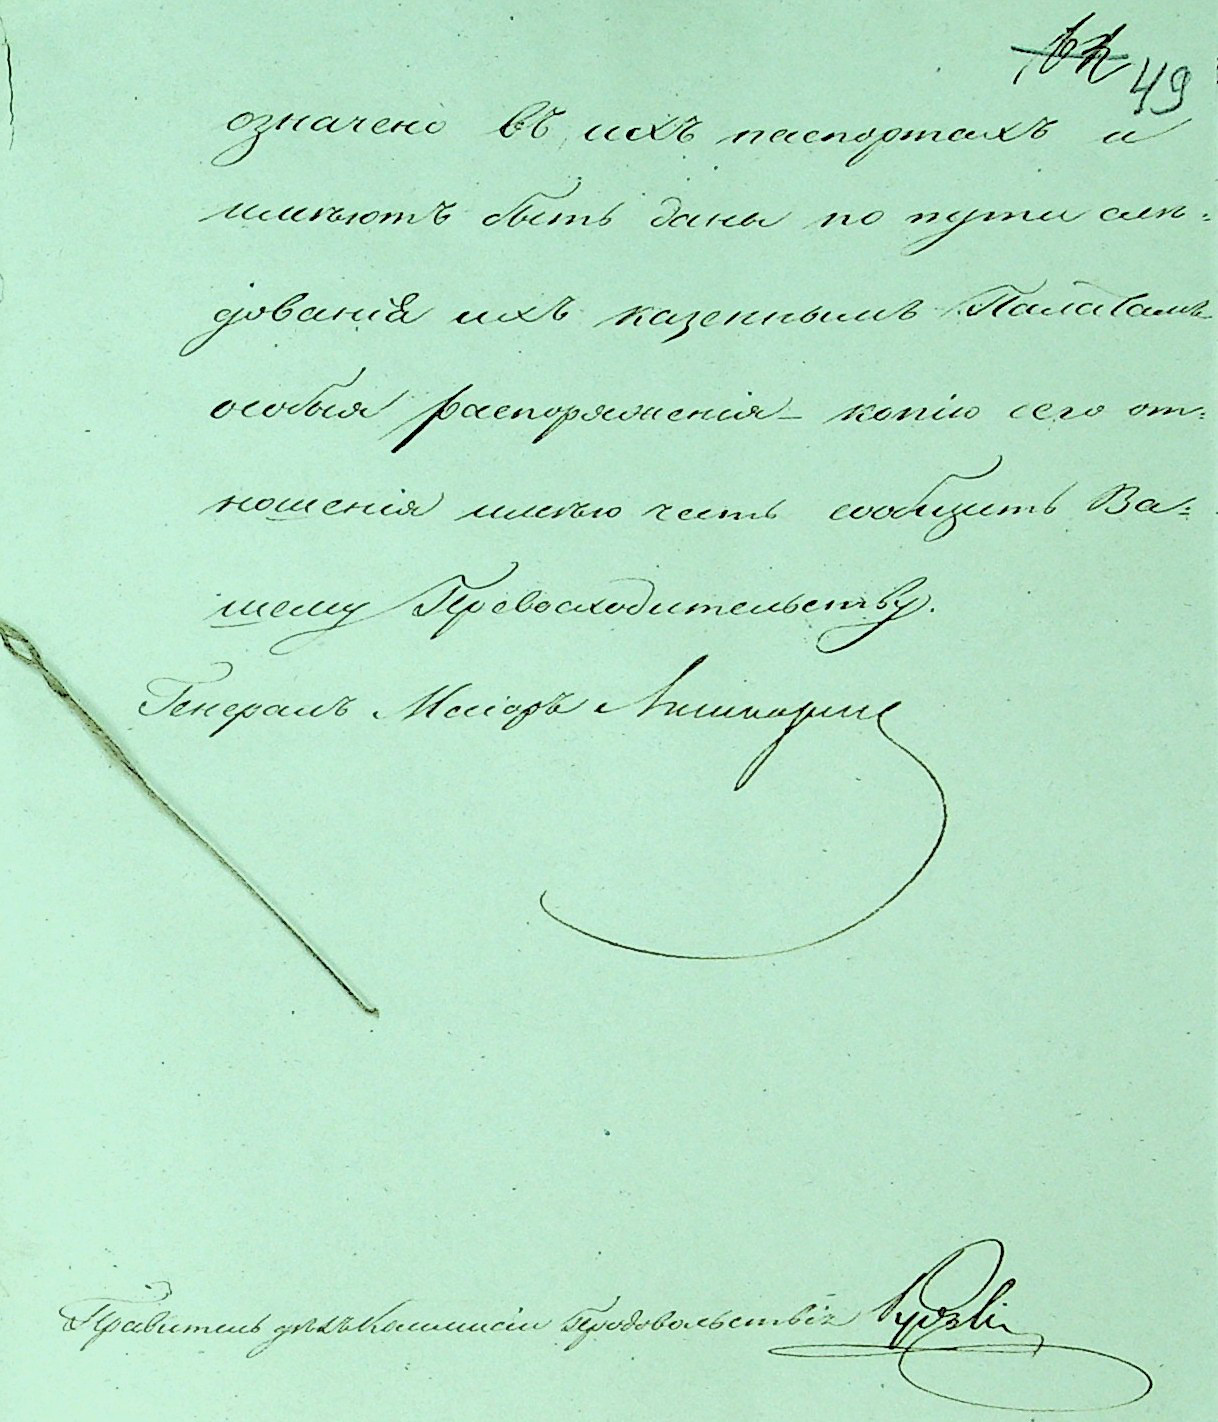 49
означено въ ихъ паспортахъ и
имѣютъ быть даны по пути слѣ=
дованія ихъ казеннымъ Палатамъ
особыя распоряженія – копію сего от=
ношенія имѣю честь сообщить Ва=
шему Превосходительству.
Генералъ Маіоръ
Правитель дѣлъ Коммисіи Продовольствія